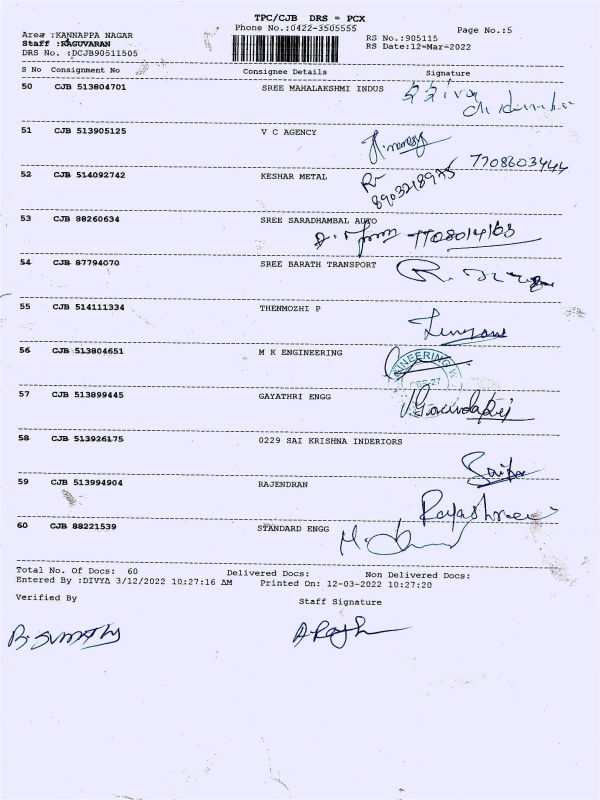 TPC/CJB DRS = PCX
Phone No.:0422-3505555
Page No.:5
Area :KANNAPPA NAGAR
RS No.:905115
Staff :RAGUVARAN
RS Date:12-Mar-2022
DRS No. :DCJB90511505
S No Consignment No Consignee Details Signature
50 CJB 513604701 SREE MAHALAKSHMI INDUS
51 CJB 513905125 V C AGENCY
7708603444
52 CJB 514092742 KESHAR METAL
8903218975
53 CJB 88260634 SREE SARADHAMBAL AUTO
7708014163
54 CJB 87794070 SREE BARATH TRANSPORT
55 CJB 514111334 THENMOZHI P
56 CJB 513804651 M K ENGINEERING
57 CJB 513899445 GAYATHRI ENGG
58 CJB 513926175 0229 SAI KRISHNA INDERIORS
59 CJB 513994904 RAJENDRAN
60 CJB 88221539 STANDARD ENGG
Total No. Of Docs: 60 Delivered Docs: Non Delivered Docs:
Entered By :DIVYA 3/12/2022 10:27:16 AM Printed On: 12-03-2022 10:27:20
Verified By Staff Signature